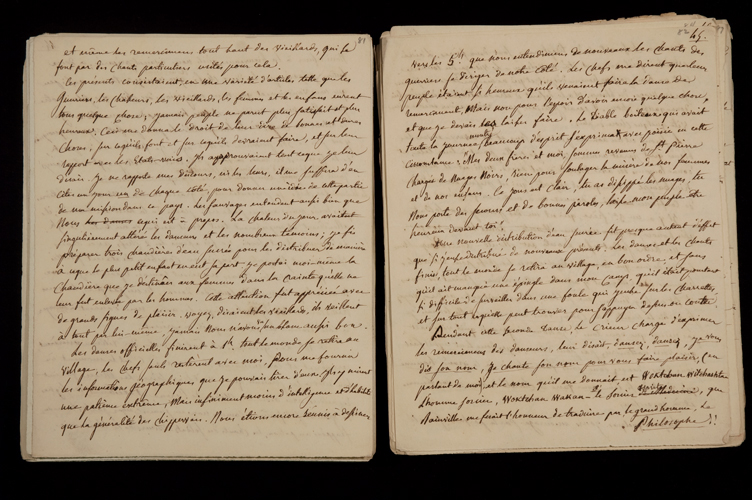 81
et même les remerciemens tout haut des vieillards, qui se
font par des chants particuliers usités pour cela.
Les présents consistaient en une variété d'articles, telle que les
Guerriers, les chasseurs, les vieillards, les femmes et les enfans eurent
tous quelque chose, jamais peuple ne parut plus satisfait et plus
heureux. Ceci me donna le droit de leur dire de bonnes et dures
choses, sur ce qu'ils font et sur ce qu'ils devraient faire, et sur leur
rapport avec les États-unis. Ils approuvaient tout ce que je leur
disais. Je ne rapporte mes discours, ni les leurs, il me suffira d'en
citer un jour un de chaque côté, pour donner une idée de cette partie
de ma mission dans ce pays. Les sauvages entendent aussi bien que
Nous. La chaleur du jour avaient
singulièrement altéré les danseurs et les nombreux témoins; je fis
préparer trois chaudières d'eau sucrée pour les distribuer de manière
à ce que le plus petit enfant en eut sa part. je portai moi-même la
chaudière que je destinais aux femmes dans la crainte qu'elle ne
leur fut enlevée par les hommes. Cette attention fut appréciée avec
de grands signes de plaisir. voyez, disaient les vieillards, il veillent
à tout par lui même, jamais Nous n'avons vu un blanc aussi bon.
Les danses officielles finirent à tout le monde se retira au
Village, les chefs seuls restèrent avec moi, pour me fournir
les informations géographiques que je pouvais tirer d'eux. Ils y mirent
une patience extrême, Mais infiniment moins d'intelligence et d'habileté
que la généralité des Chippeways. Nous étions encore à dessiner,
45.
vers les 5h que nous entendimes de nouveau les chants des
guerriers se diriger de notre côté. Les chefs me dirent que leur
peuple étaient si heureux qu'ils venaient faire la danse de
remerciment, Mais non pour l'espoir d'avoir encore quelque chose,
et que je devais les laisser faire. Le Diable boiteux qui avait
toute la journée montré beaucoup d'esprit s'exprima avec poésie en cette
circonstance: Mes deux frères et moi, sommes revenus de St Pierre
chargés de Nuages Noirs, rien pour soulager la misère de nos femmes
et de nos enfans. Ce jour est clair, tu as dissipé les nuages, tu
Nous porte des secours et de bonnes paroles, laisse mon peuple être
heureux devant toi!
Une nouvelle distribution d'eau sucrée fit presque autant d'effet
que si j'eusse distribué de nouveaux présents. Les danses et les chants
finis, tout le monde se retira au village, en bon ordre, et sans
qu'il ait manqué une épingle dans mon camp, qu'il était pourtant
si difficile de surveiller dans une foule qui juche sur les charrettes,
et sur tout ce qu'elle peut trouver pour s'appuyer dessus ou contre.
Pendant cette seconde danse, le Crieur chargé d'exprimer
les remerciemens des danseurs, leur disait, dansez, dansez, je vous
dis son nom, je chante son nom pour vous faire plaisir, (en
parlant de moi) et le nom qu'il me donnait, est Woktchan Witshashta
l'homme sorcier, Woktchan Wakan - le sorcier, que
Rainville me faisait l'honneur de traduire par le grand homme, Le
Philosophe!!